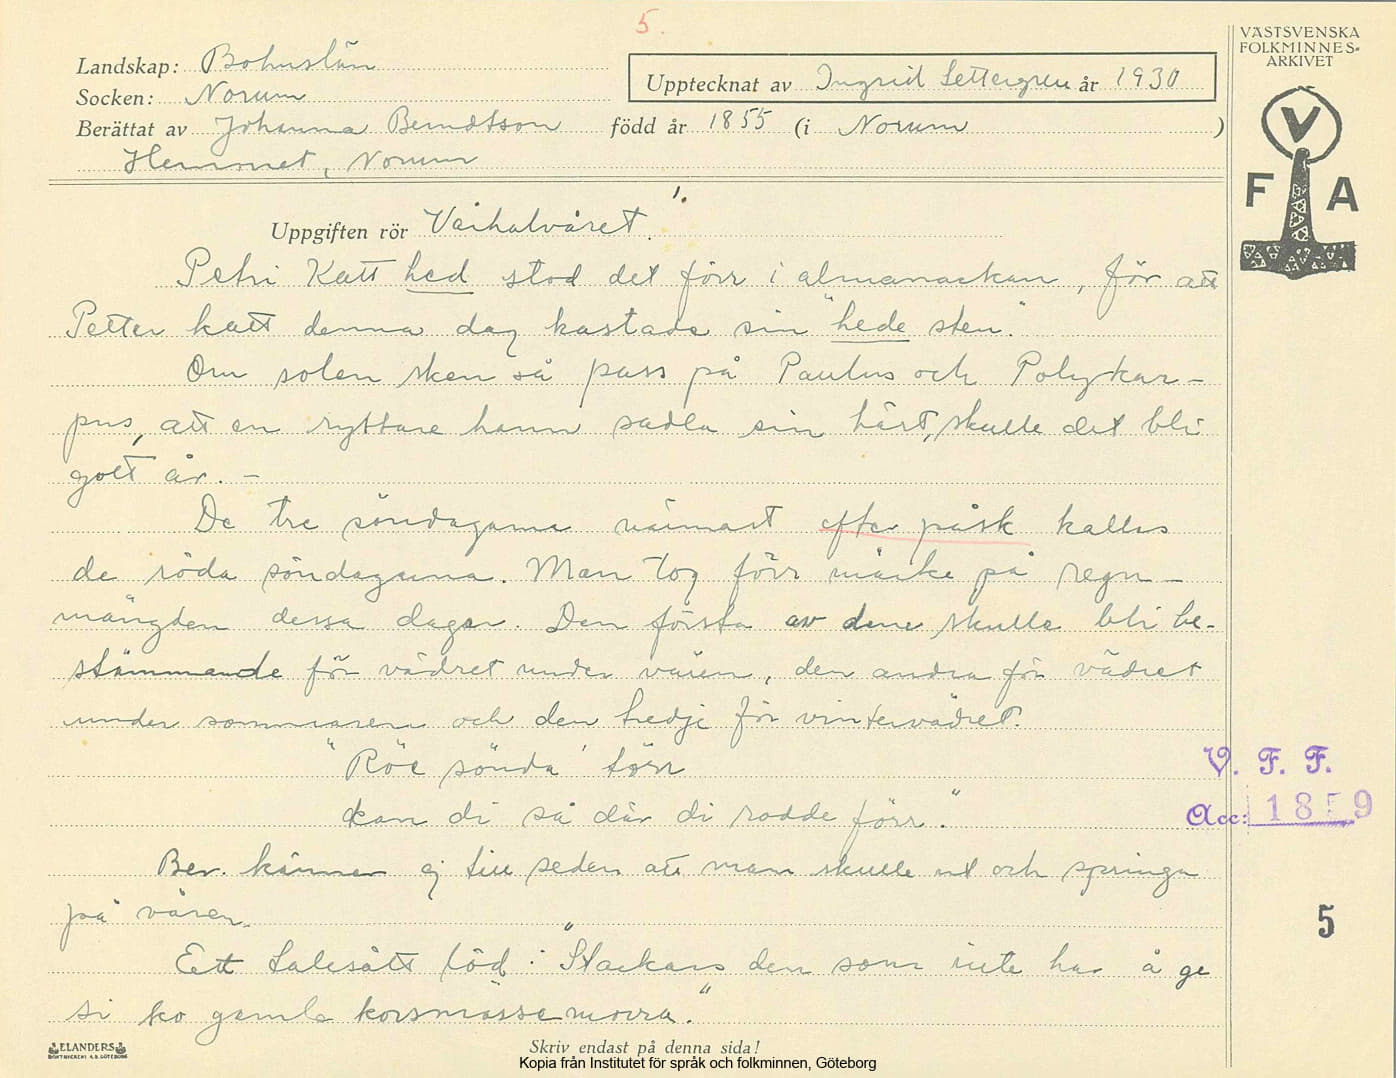 5.
VÄSTSVENSKA
FOLKMINNES-
ARKIVET
Landskap: Bohuslän
Upptecknat av Ingrid Settergren år 1930
Socken: Norum
Berättat av Johanna Berndtson född år 1855 (i Norum )
Hemmet, Norum
V
F A
1.
Uppgiften rör Vårhalvåret.
Petri Katt hed stod det förr i almanackan, för att
Petter katt denna dag kastade sin "hede sten".
Om solen sken så pass på Paulus och Polykar-
pus, att en ryttare hann sadla sin häst, skulle det bli
gott år. –
De tre söndagarna närmast efter påsk kallas
de röda söndagarna. Man tog förr märke på regn-
mängden dessa dagar. Den första av dem skulle bli be-
stämmande för vädret under våren, den andra för vädret
under sommaren och den tredje för vintervädret.
"Röe sönda' törr
kan di så där di rodde förr."
Ber. känner ej till seden att man skulle ut och springa
på våren.
Ett talesätt löd: "Stackars den som inte har å ge
si ko gamle korsmässemorra."
V. F. F.
Acc: 1859
5
ELANDERS
BOKTRYCKERI A.B. GÖTEBORG
Skriv endast på denna sida!
Kopia från Institutet för språk och folkminnen, Göteborg